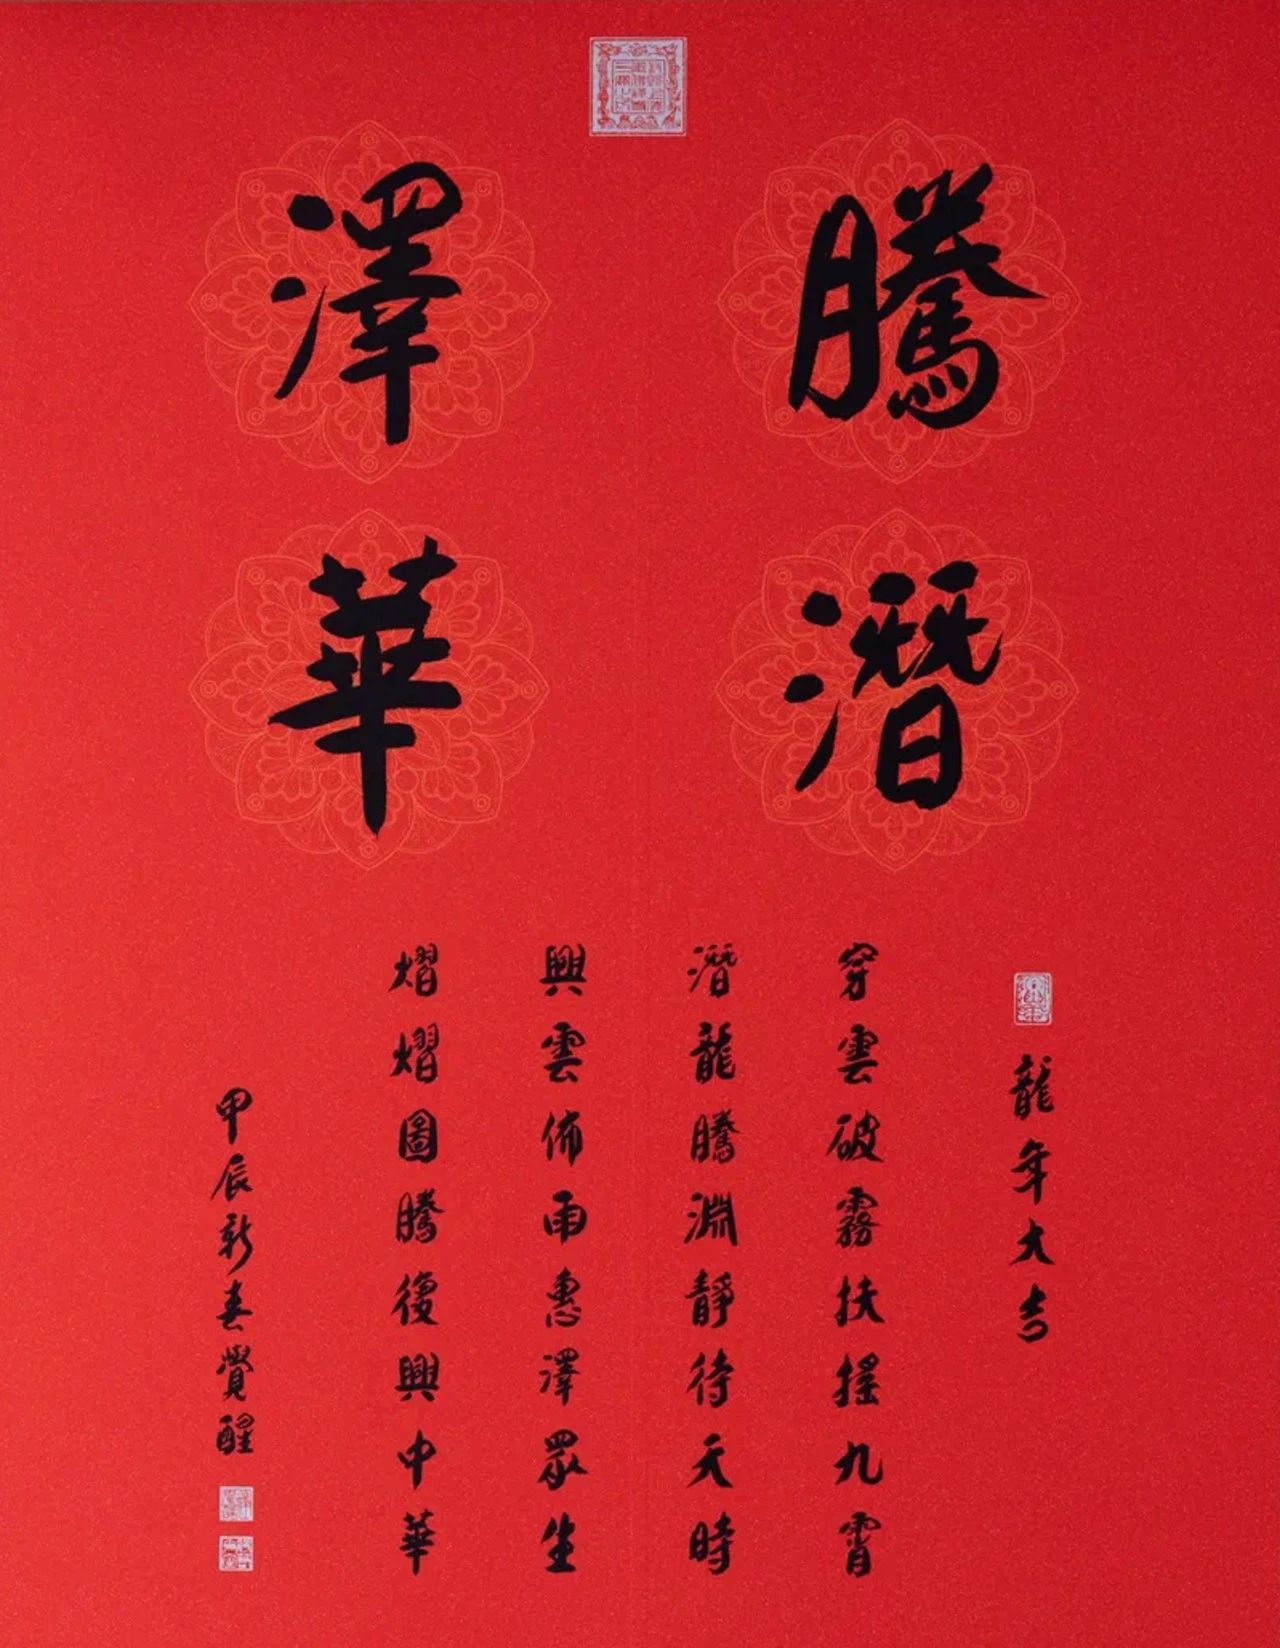 騰潛
澤華
龍年大吉
穿雲破霧扶搖九霄
潛龍騰淵靜待天時
興雲佈雨惠澤眾生
熠熠圖騰復興中華
甲辰新春覺醒